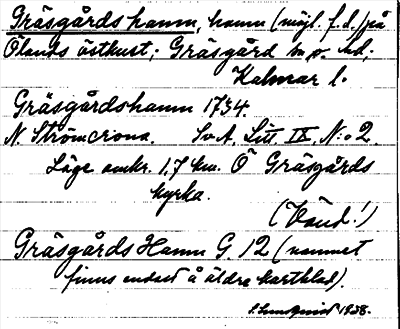 Gräsgårdshamn, hamn (möjl. f.d.) på
Ölands östkust; Gräsgård sn o. hd,
Kalmar l.
Gräsgårdshamn 1734.
N. Strömcrona. SvA, Litt. IX, N:o 2
Läge omkr. 1,7 km. Ö Gräsgårds
kyrka.
(Vänd!)
Gräsgårds Hamn G. 12 (namnet
finns endast å äldre kartblad).
Lundquist 1938.